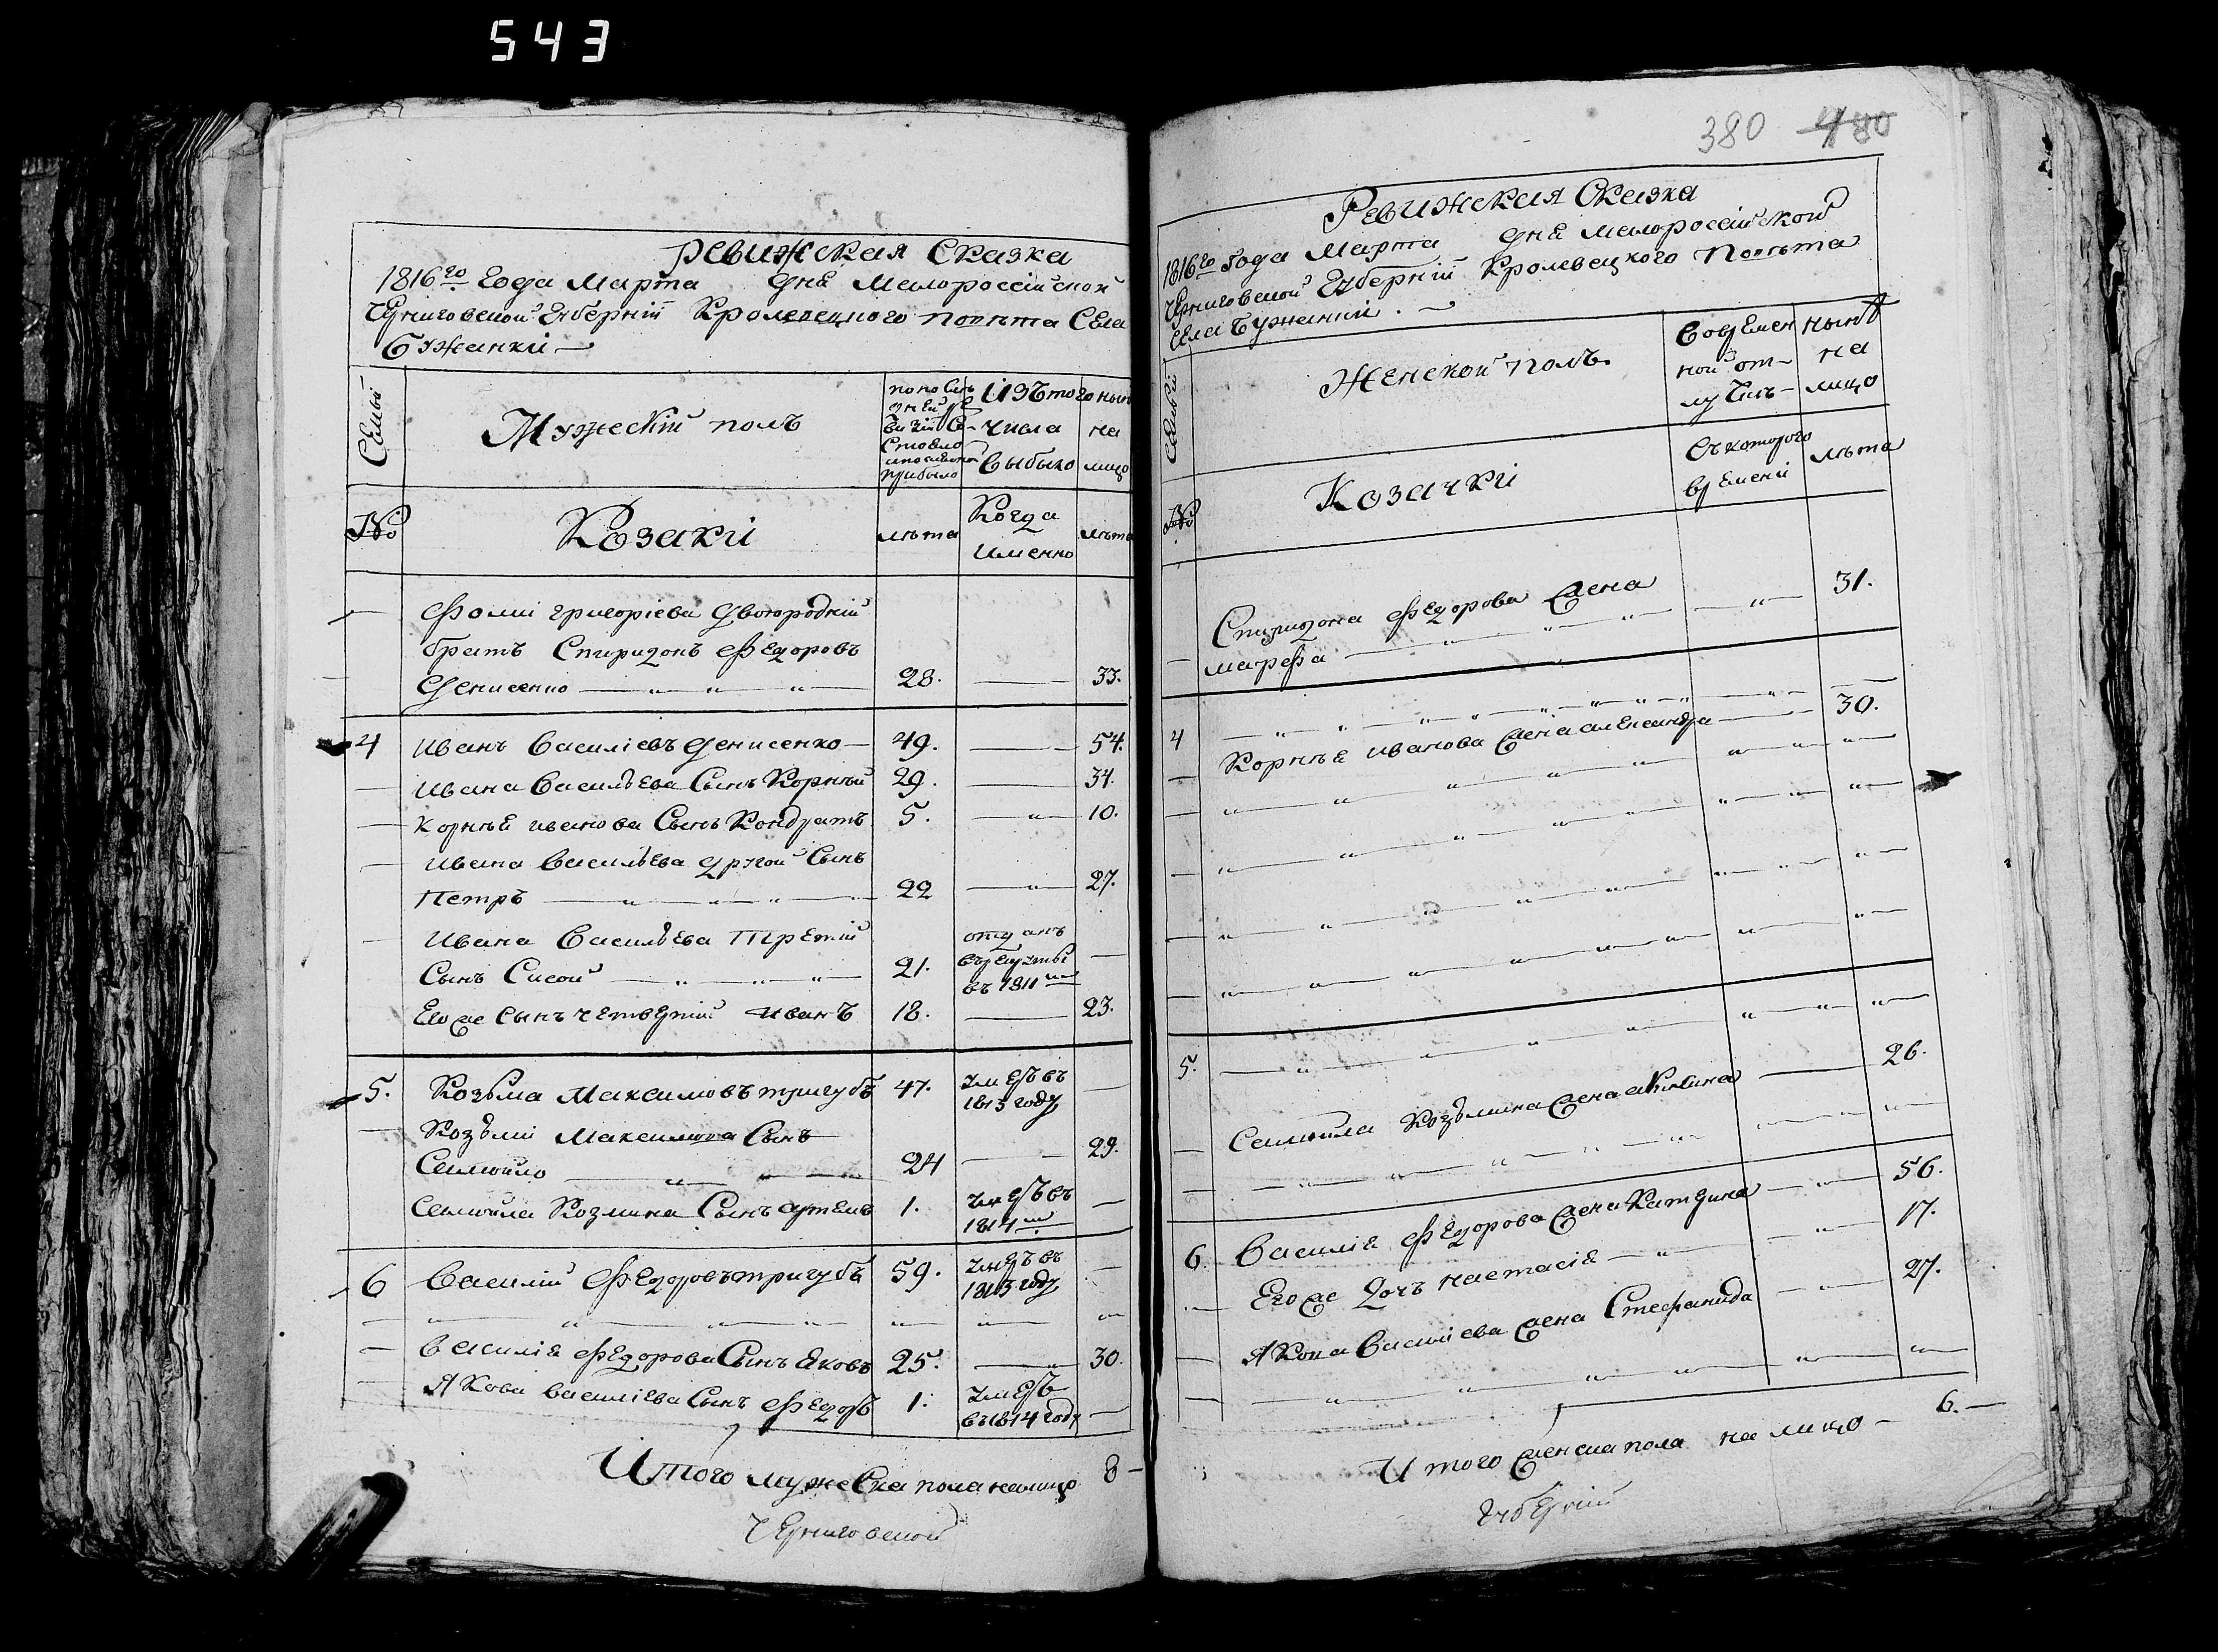 543
ревижская сказка
1816го года марта дня малороссийской
черниговской губернии кролевецкого повъта села
бужанки
Семьи
Мужескій полъ
Изъ того
числа
выбыло
ныне
на
лицо
№
Козаки
лъта
Когда
именно
лъта
Фоми григоріева двоюродній
братъ Спиридонъ Федоровъ
Денисенко 28. 33.
4 Иванъ Василіевъ Денисенко 49. 54.
Ивана Васильева Сынъ Корнъй 29. 34.
Корнъя иванова Сынъ Кондратъ 5. 10.
Ивана Васильева другой Сынъ
Петръ 22 27.
Ивана Васильева Третій
Сынъ Сисой 21. отданъ
въ рекруты
въ 1811м
Его же сынъ четвертій иванъ 18. 23.
5. Козьма Максимовъ тригубъ 47. умеръ въ
1813 году
Козьми Максимова Сынъ
Самойло 24 29.
Самойла Козмина Сынъ артемъ 1. умеръ въ
1814м
6 Василій Федоровъ тригубъ 59. умеръ въ
1813 году
Василія федорова Сынъ Яковъ 25. 30.
Якова василіева Сынъ Федоръ 1. умеръ
въ 1814 году
Итого мужеска пола налицо 8
черниговской
380 480
Ревижская Сказка
1816го года Марта дня малороссійской
черниговской губерніи Кролевецкого Повъта
села Бужанки.
Семьи
Женской полъ
Во времен
ной от-
лучкъ
нынъ
на
лицо
№
Козачки
Съ которого
времени
лъта
Спиридона Федорова жена
марфа 31.
4
Корнъя иванова жена александра 30.
5.
Самойла Козьмина жена акилина 26.
6. Василія Федорова жена Катерина 56.
Его же дочъ настасія 17.
Якова Василіева жена Стефанида 27.
Итого женска пола на лицо 6.
губерній